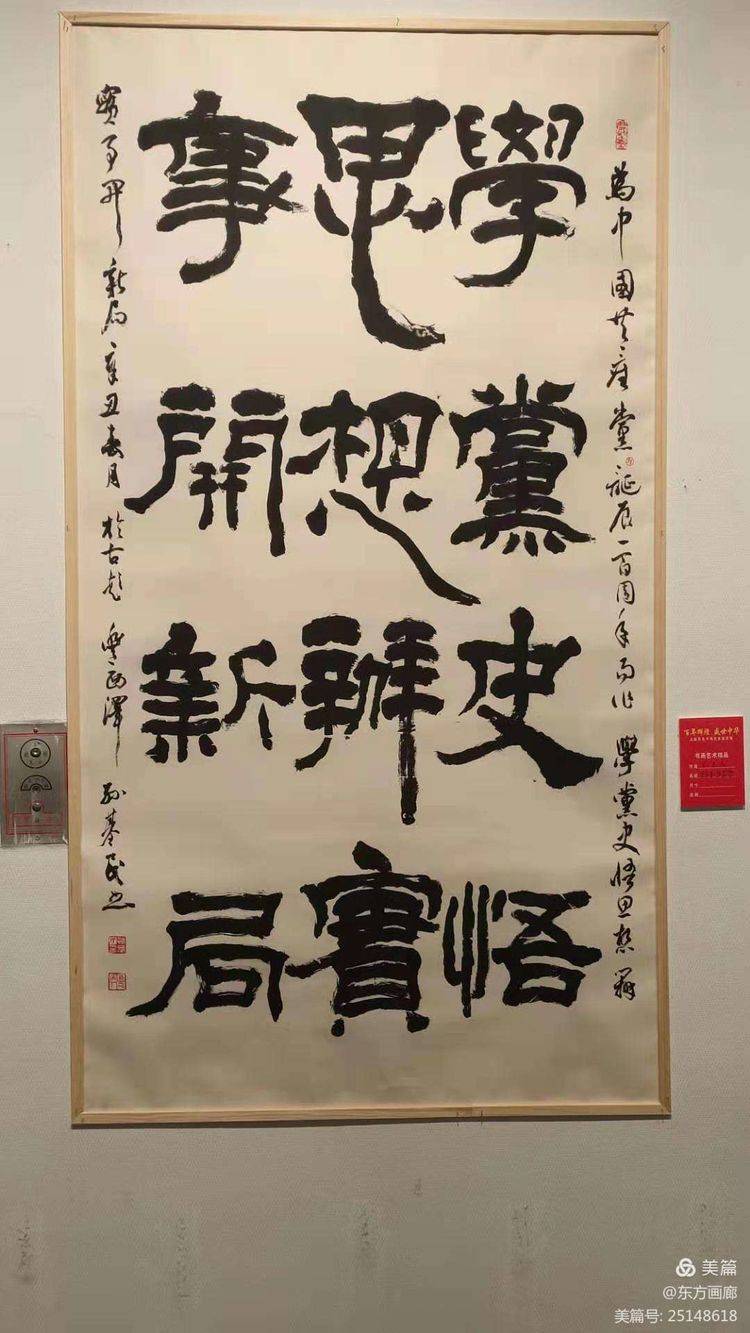 為中國共產黨誕辰一百周年而作 學黨史悟思想辦
學黨史悟
思想辦實
事開新局
實事開新局辛丑春月於古彭
百年辉煌 盛世中华
书画艺术精品
美篇
@东方画廊
美篇号: 25148618